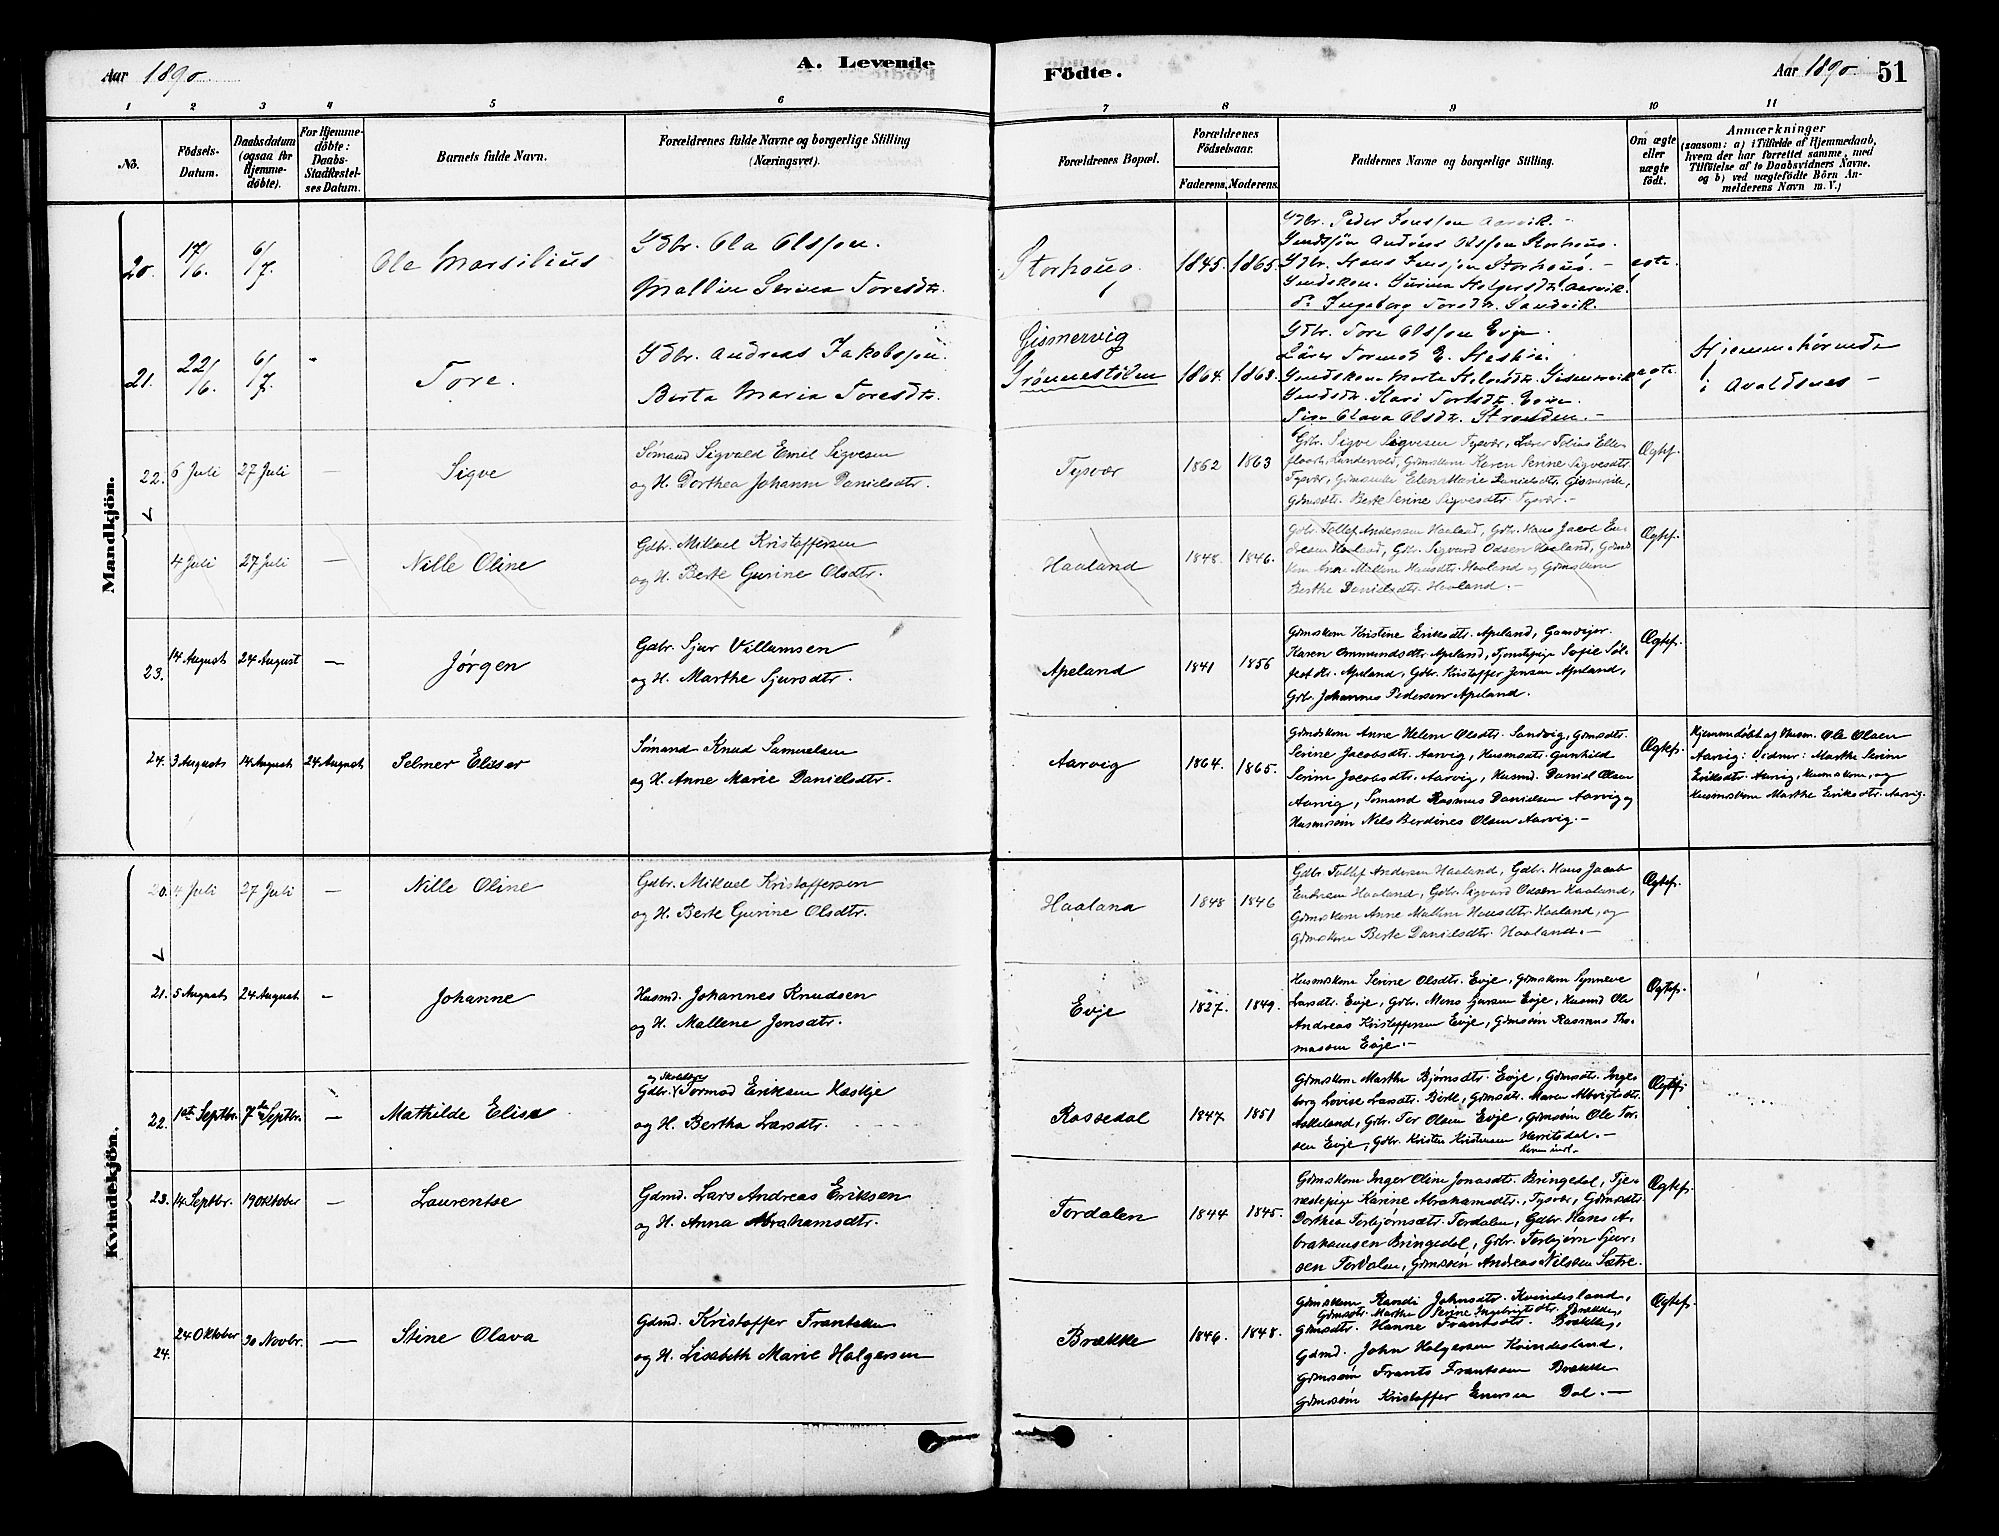 Aar 1890.
A. Levende
Födte.
Aar 1890.
51
1 2 3 4 5 6 7 8 9 10 11
No.
Födsels-Datum.
Daabsdatum (ogsaa for Hjemme-döbte).
For Hjemme-döbte: Daabs-Stadfæstel-ses Datum.
Barnets fulde Navn.
Forældrenes fulde Navne og borgerlige Stilling (Næringsvei).
Forældrenes Bopæl.
Forældrenes Födselsaar.
Faderens. Moderens.
Faddernes Navne og borgerlige Stilling.
Om ægte eller uægte födt.
Anmærkninger
(saasom: a) i Tilfælde af Hjemmedaab, hvem der har forrettet samme, med Tilföielse af to Daabsvidners Navne. og b) ved uægtefödte Börn An-melderens Navn m. V.)
Mandkjön.
20. 17/6. 6/7. Ole Marsilius
Gdbr. Ola Olsson.
Mallin Serina Toresdtr.
Storhoug 1845. 1865.
Gdbr. Peder Jonsson Aarvik.
Andreas Olsson Storhoug.
Gdbr. Hans Storhoug.
Holgersdtr. Aarvik.
P. Ingeborg Toresdtr. Sandvik.
ægte.
21. 22/6. 6/7. Tore.
Gdbr. Andreas Jakobsson.
Berta Maria Toresdtr.
Gismervig
Grönnestølen 1864. 1863.
Gdbr. Tore Olsson Evje.
Lärer Tormod E. Haskie.
Marta
Kari Toresdtr. Evje.
Pige Olava Olsdtr. Stranden.
ægte.
Hjemmehørende
i Avaldsnes
22. 6 Juli 27 Juli — Sigve
Sømand Sigvald Emil Sigvesen
og H. Dorthea Johanne Danielsdtr.
Tysvær 1862 1863
Gdbr. Sigve Sigvesen Tysvær, Lærer Tobias
Gdmskom Karen Serine Sigvesdtr.
Tysvær, Elen Marie Danielsdtr. Gismervik,
Gdmsdtr. Berte Serine Sigvesdtr. Tysvær.—
Ægtef.
4 Juli 27 Juli — Nille Oline
Gdbr. Mikael Kristoffersen
og H. Berte Gurine Olsdtr.
Haaland 1848. 1846.
Gdbr. Tollef Andersen Haaland, Gdbr. Hans Jacob En-
dresen Haaland, Gdbr. Sigvard Odsen Haaland, Gdms-
kom Anne Mallene Hansdtr. Haaland og Gdmskom
Berthe Danielsdtr. Haaland.—
Ægtef.
23. 14 August 24 August — Jørgen
Gdbr. Sjur Villumsen
og H. Marthe Sjursdtr.
Apeland 1841 1856
Gdmskom Kristine Eriksdtr. Apeland,
Karen Ommundsdtr. Apeland, Tjenstepige Sofie Søl-
festdtr. Apeland, Gdbr. Kristoffer Jensen Apeland,
Gdbr. Johannes Pedersen Apeland.
Ægtef.
24. 3 August 14 August 24 August Selmer Elisser
Sømand Knud Samuelsen
og H. Anne Marie Danielsdtr.
Aarvig 1864. 1865.
Gdmskom Anne Helene Olsdtr. Sandvig, Gdmsdtr.
Serine Jacobsdtr. Aarvig, Husmsdtr. Gunhild
Serine Jacobsdtr. Aarvig, Husmd. Daniel Olsen
Aarvig, Sømand Rasmus Danielsen Aarvig og
Husmssøn Nils Berdines Olsen Aarvig.—
Ægtef.
Hjemmedøbt af Husm. Ole Olsen
Aarvig: Vidner: Marthe Serine
Eriksdtr. Aarvig, Husmskom, og
Husmskom Marthe Eriksdtr. Aarvig.
Kvindekjön.
20. 4 Juli 27 Juli — Nille Oline
Gdbr. Mikael Kristoffersen
og H. Berte Gurine Olsdtr.
Haaland 1848 1846
Gdbr. Tollef Andersen Haaland, Gdbr. Hans Jacob
Endresen Haaland, Gdbr. Sigvard Odsen Haaland,
Gdmskom Anne Mallene Hansdtr. Haaland, og
Gdmskom Berte Danielsdtr. Haaland.—
Ægtef.
21. 5 August 24 August — Johanne
Husmd. Johannes Knudsen
og H. Mallene Jensdtr.
Evje 1827. 1849.
Husmskom Serine Olsdtr. Evje, Gdmskom Synneve
Larsdtr. Evje, Gdbr. Mons Evje, Husmd Ole
Andreas Kristoffersen Evje, Gdmssøn Rasmus Tho-
massen Evje.—
Ægtef.
22. 1st Septbr. 7de Septbr. — Mathilde Elise
og Skolelærer
Gdbr. Tormod Eriksen Haskje
og H. Bertha Larsdtr.
Rossedal 1847. 1851
Gdmskom Marthe Bjørnsdtr. Evje, Gdmsdtr. Inge-
borg Lovise Larsdtr. Birke, Gdmsdtr. Maren
Askeland, Gdbr. Tor Olsen Evje, Gdmssøn Ole Tor-
sen Evje, Gdbr. Kristen Kristensen
Ægtef.
23. 14 Septbr. 19 Oktober — Laurentse
Gdmd. Lars Andreas Eriksen
og H. Anna Abrahamsdtr.
Tordalen 1844 1845.
Gdmskom Inger Oline Jonasdtr. Bringedal, Tje-
nestepige Karine Abrahamsdtr. Tysvær, Gdmsdtr.
Dorthea Torbjørnsdtr. Tordalen, Gdbr. Hans A-
brahamsen Bringedal, Gdbr. Torbjørn Sjur-
sen Tordalen, Gdmssøn Andreas Nilsen Sætre.
Ægtef.
24. 24 Oktober 30 Novbr. — Stine Olava
Gdmd. Kristoffer Frantsen
og H. Lisabeth Marie Holgersen
Brække 1846. 1848.
Gdmskom Randi Johnsdtr. Kvindesland,
Gdmsdtr. Marthe Serine Ingebrigtsdtr. Brække,
Gdmsdtr. Hanne Frantsdtr. Brække,
Gdmd. John Holgersen Kvindesland,
Gdmssøn Frants Frantsen Brække
Gdmssøn Kristoffer Enersen Dal.—
Ægtef.